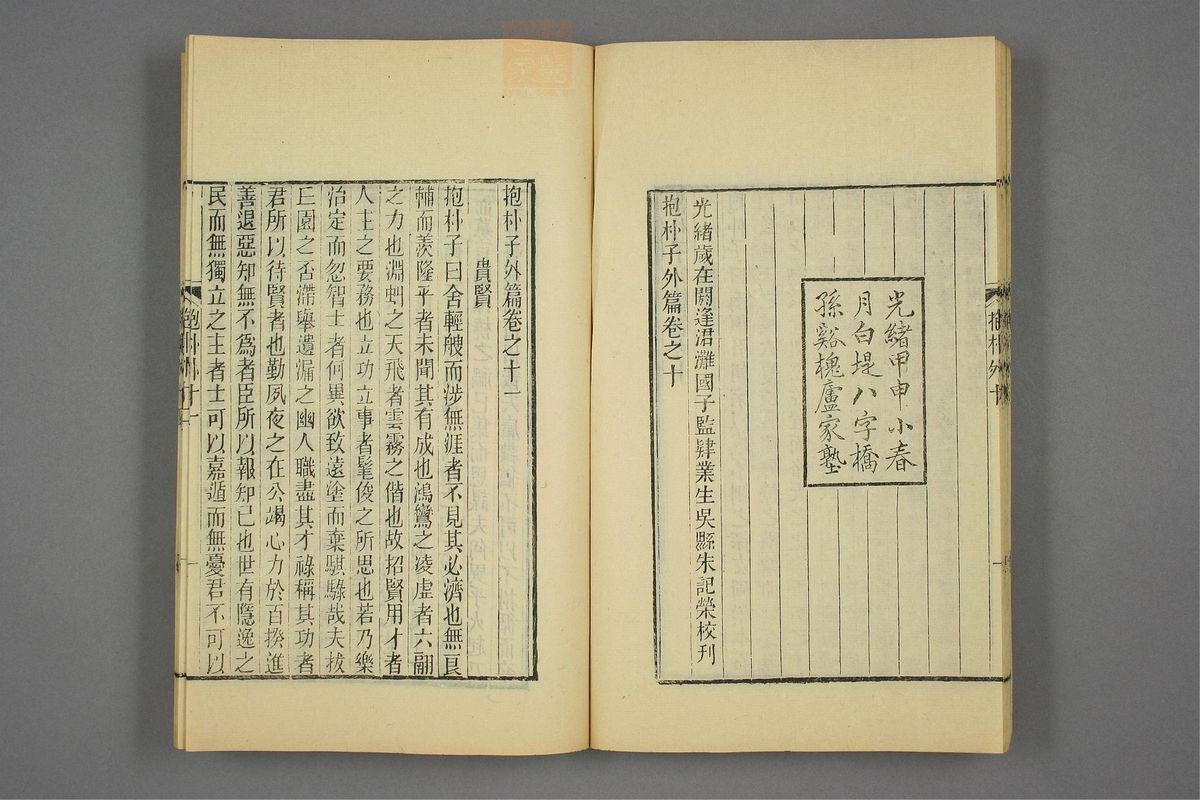 光緒甲申小春
月白堤八字橋
孫谿槐廬家塾
光緒歲在閼逢涒灘國子監肄業生吳縣朱記榮校刊
抱朴子外篇卷之十
抱朴外十
抱朴子外篇卷之十一
貴賢
抱朴子曰舍輕艘而涉無涯者不見其必濟也無良
輔而羨隆平者未聞其有成也鴻鸞之凌虛者六翮
之力也淵虯之天飛者雲霧之偕也故招賢用才者
人主之要務也立功立事者髦俊之所思也若乃樂
治定而忽智士者何異欲致遠塗而棄騏騄哉夫拔
丘園之否滯舉遺漏之幽人職盡其才祿稱其功者
君所以待賢者也勤夙夜之在公竭心力於百揆進
善退惡知無不爲者臣所以報知己也世有隱逸之
民而無獨立之主者士可以嘉遁而無憂君不可以
抱朴十一
一